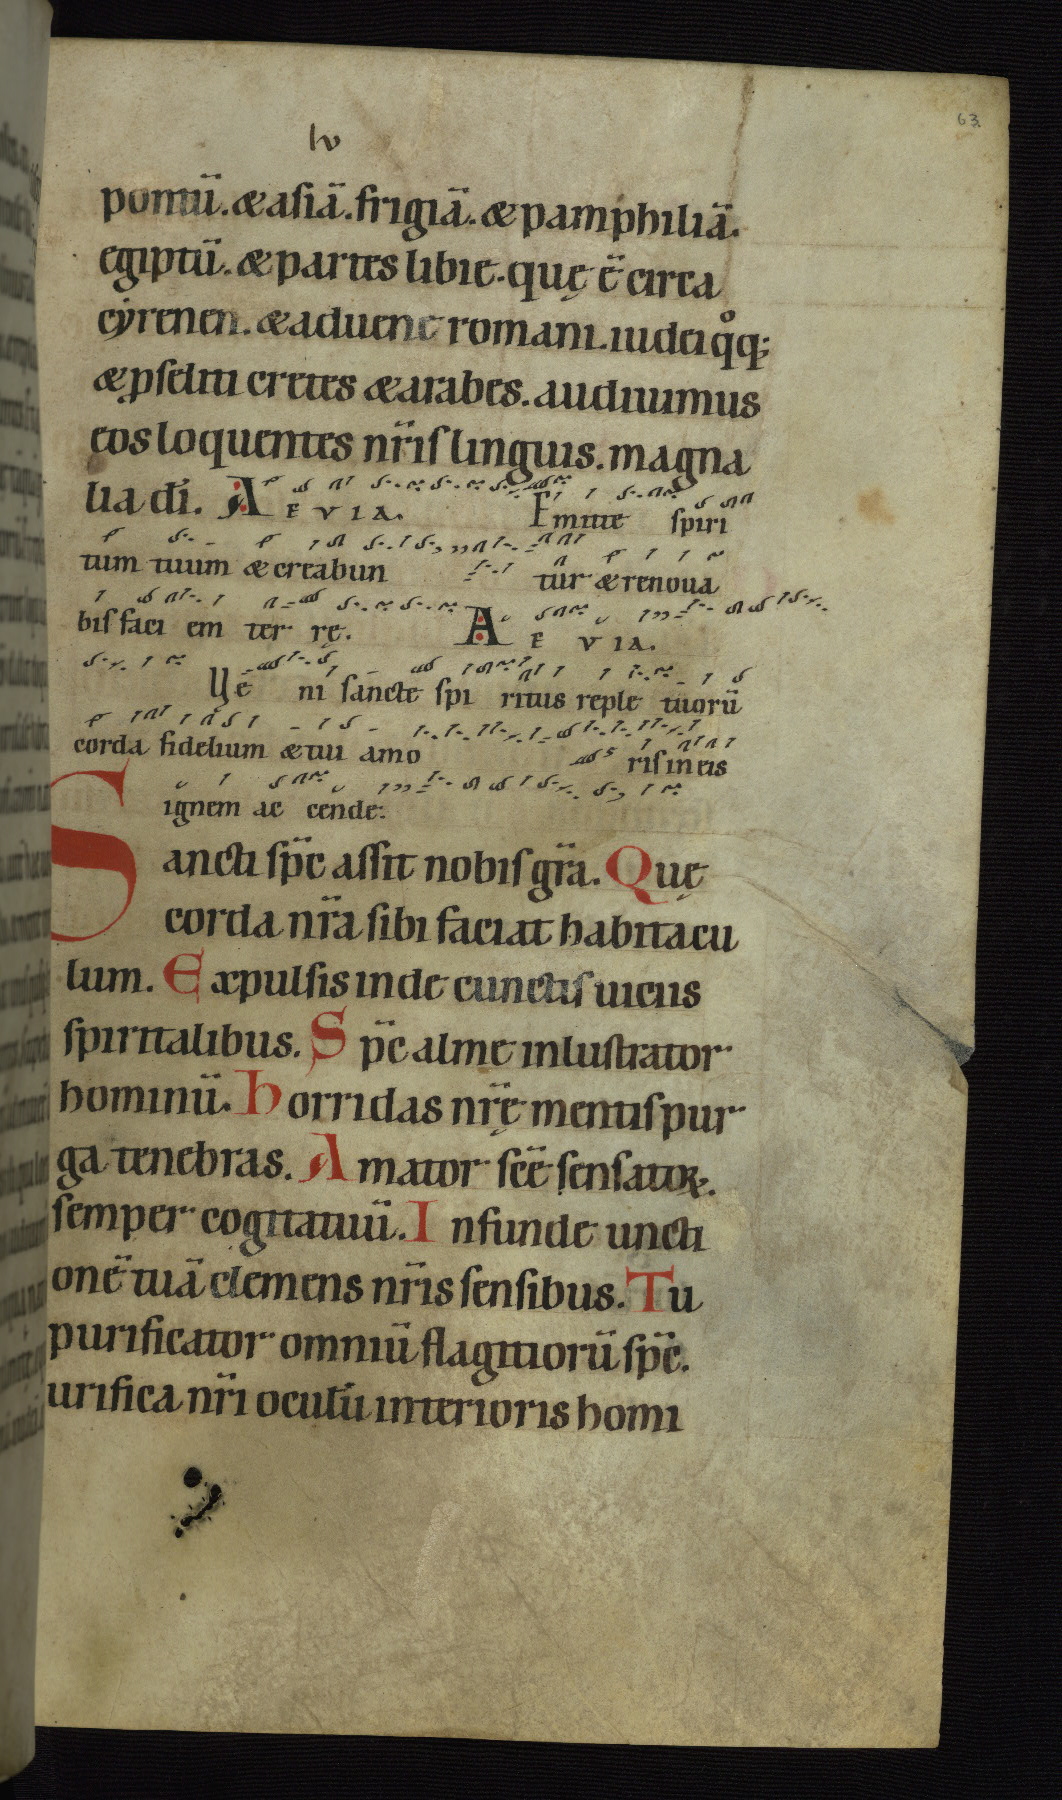 63
lv
pontū. &asiā. frigiā. &pamphiliā.
egiptū. &partes libie. quę ē circa
cyrenen. &aduenę romani. iudei qͦq;
&pseliti cretes &arabes. audiuimus
eos loquentes nr̄is linguis. magna
lia dī. AEVIA. Emitte spiri
tum tuum &creabun tur &renoua
bis faci em ter rę. AEVIA.
Ve ni sancte spi ritus reple tuorū
corda fidelium &tui amo ris in eis
ignem ac cende:
Sancti sp̄c assit nobis gr̄a. Quę
corda nr̄a sibi faciat habitacu
lum. Expulsis inde cunctis uiciis
spiritalibus. Sp̄c alme inlustrator
hominū. Horridas nr̄ę mentis pur
ga tenebras. Amator scē sensatorꝝ.
semper cogitatuū. Infunde uncti
onē tuā clemens nr̄is sensibus. Tu
purificator omniū flagitiorū sp̄c.
urifica nr̄i oculū interioris homi